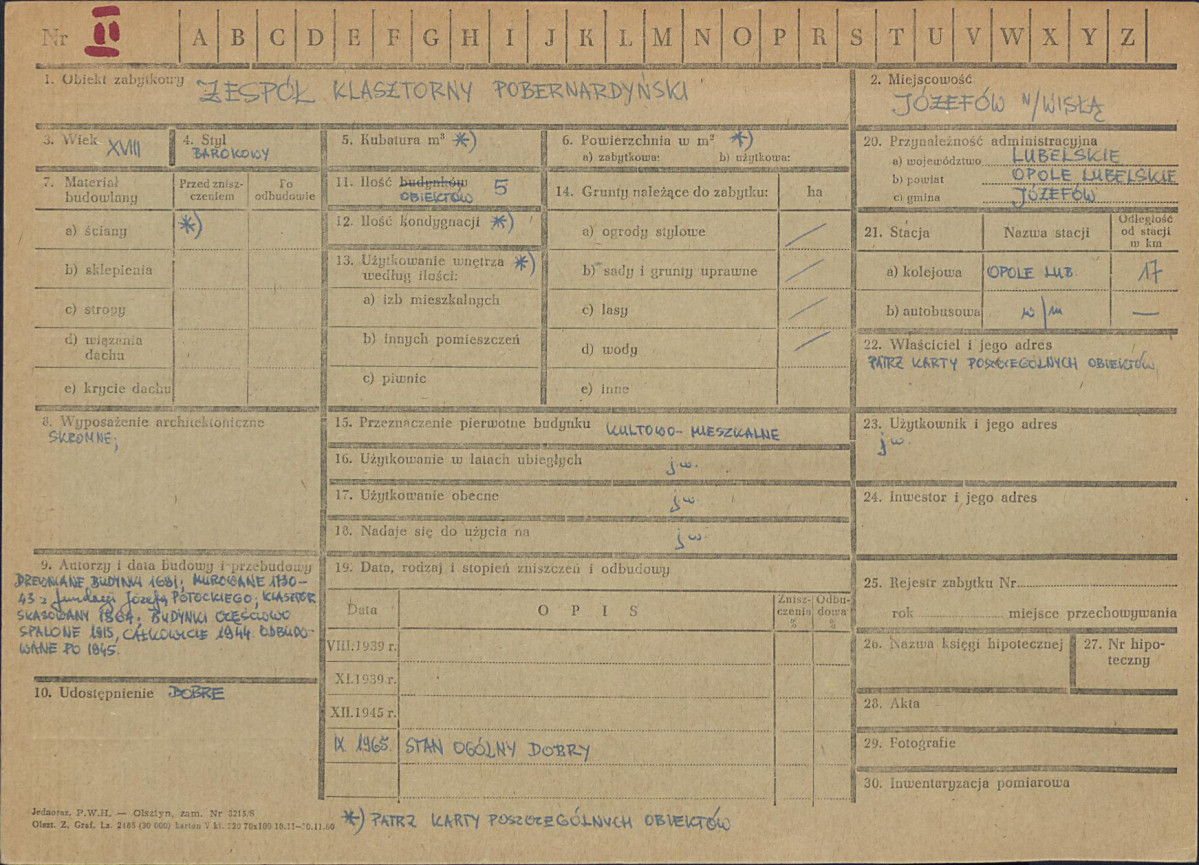 Nr II A B C D E F G H I J K L M N O P R S T U V W X Y Z
1. Obiekt zabytkowy ZESPÓŁ KLASZTORNY POBERNARDYŃSKI
2. Miejscowość
JÓZEFÓW N/WISŁĄ
3. Wiek XVIII
4. Styl
BAROKOWY
5. Kubatura m³ *)
6. Powierzchnia w m² *)
a) zabytkowa: b) użytkowa:
20. Przynależność administracyjna
a) województwo LUBELSKIE
b) powiat OPOLE LUBELSKIE
c) gmina JÓZEFÓW
7. Materiał budowlany
Przed zniszczeniem
Po odbudowie
a) ściany *)
b) sklepienia
c) stropy
d) wiązania dachu
e) krycie dachu
11. Ilość budynków 5
OBIEKTÓW
12. Ilość kondygnacji *)
13. Użytkowanie wnętrza *)
według ilości:
a) izb mieszkalnych
b) innych pomieszczeń
c) piwnic
14. Grunty należące do zabytku: ha
a) ogrody stylowe /
b) sady i grunty uprawne /
c) lasy /
d) wody /
e) inne
21. Stacja
Nazwa stacji
Odległość
od stacji
w km
a) kolejowa OPOLE LUB. 17
b) autobusowa w/m —
22. Właściciel i jego adres
PATRZ KARTY POSZCZEGÓLNYCH OBIEKTÓW
8. Wyposażenie architektoniczne
SKROMNE;
15. Przeznaczenie pierwotne budynku KULTOWO-MIESZKALNE
16. Użytkowanie w latach ubiegłych jw.
17. Użytkowanie obecne jw.
18. Nadaje się do użycia na jw.
23. Użytkownik i jego adres
jw.
24. Inwestor i jego adres
9. Autorzy i data budowy i przebudowy
DREWNIANE BUDYNKI 1681; MUROWANE 1730-
43 z fundacji Józefa POTOCKIEGO; KLASZTOR
SKASOWANY 1864; BUDYNKI CZĘŚCIOWO
SPALONE 1915, CAŁKOWICIE 1944. ODBUDO-
WANE PO 1945.
10. Udostępnienie DOBRE
19. Data, rodzaj i stopień zniszczeń i odbudowy
Data OPIS
Znisz-
czenia
%
Odbu-
dowa
%
VIII.1939 r.
XI.1939 r.
XII.1945 r.
IX. 1965. STAN OGÓLNY DOBRY
25. Rejestr zabytku Nr
rok miejsce przechowywania
26. Nazwa księgi hipotecznej
27. Nr hipo-
teczny
28. Akta
29. Fotografie
30. Inwentaryzacja pomiarowa
Jednoraz. P.W.H. — Olsztyn, zam. Nr 3215/S
Olszt. Z. Graf. Lz. 2165 (30 000) karton V kl. 220 70x100 10.11—30.11.60
*) PATRZ KARTY POSZCZEGÓLNYCH OBIEKTÓW